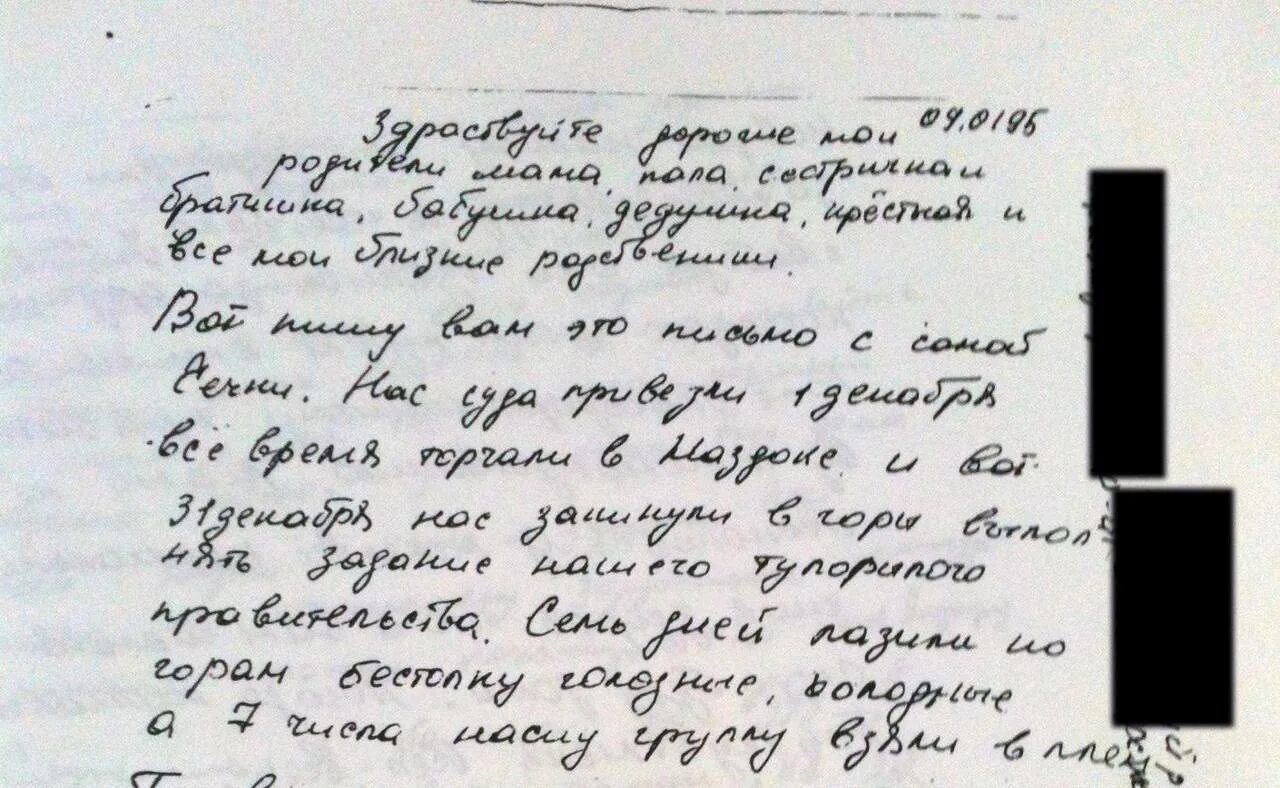 09.0195
Здраствуйте дорогие мои
родители мама, папа, сестричка и
братишка, бабушка, дедушка, крёстная и
все мои близкие родственики.
Вот пишу вам это письмо с самой
Чечни. Нас суда привезли 1 декабря
всё время торчали в Маздоке и вот
31 декабря нас закинули в горы выпол
нять задание нашего тупорылого
правительства. Семь дней лазили по
горам бестолку голодные, холодные
а 7 числа нашу группу взяли в плен